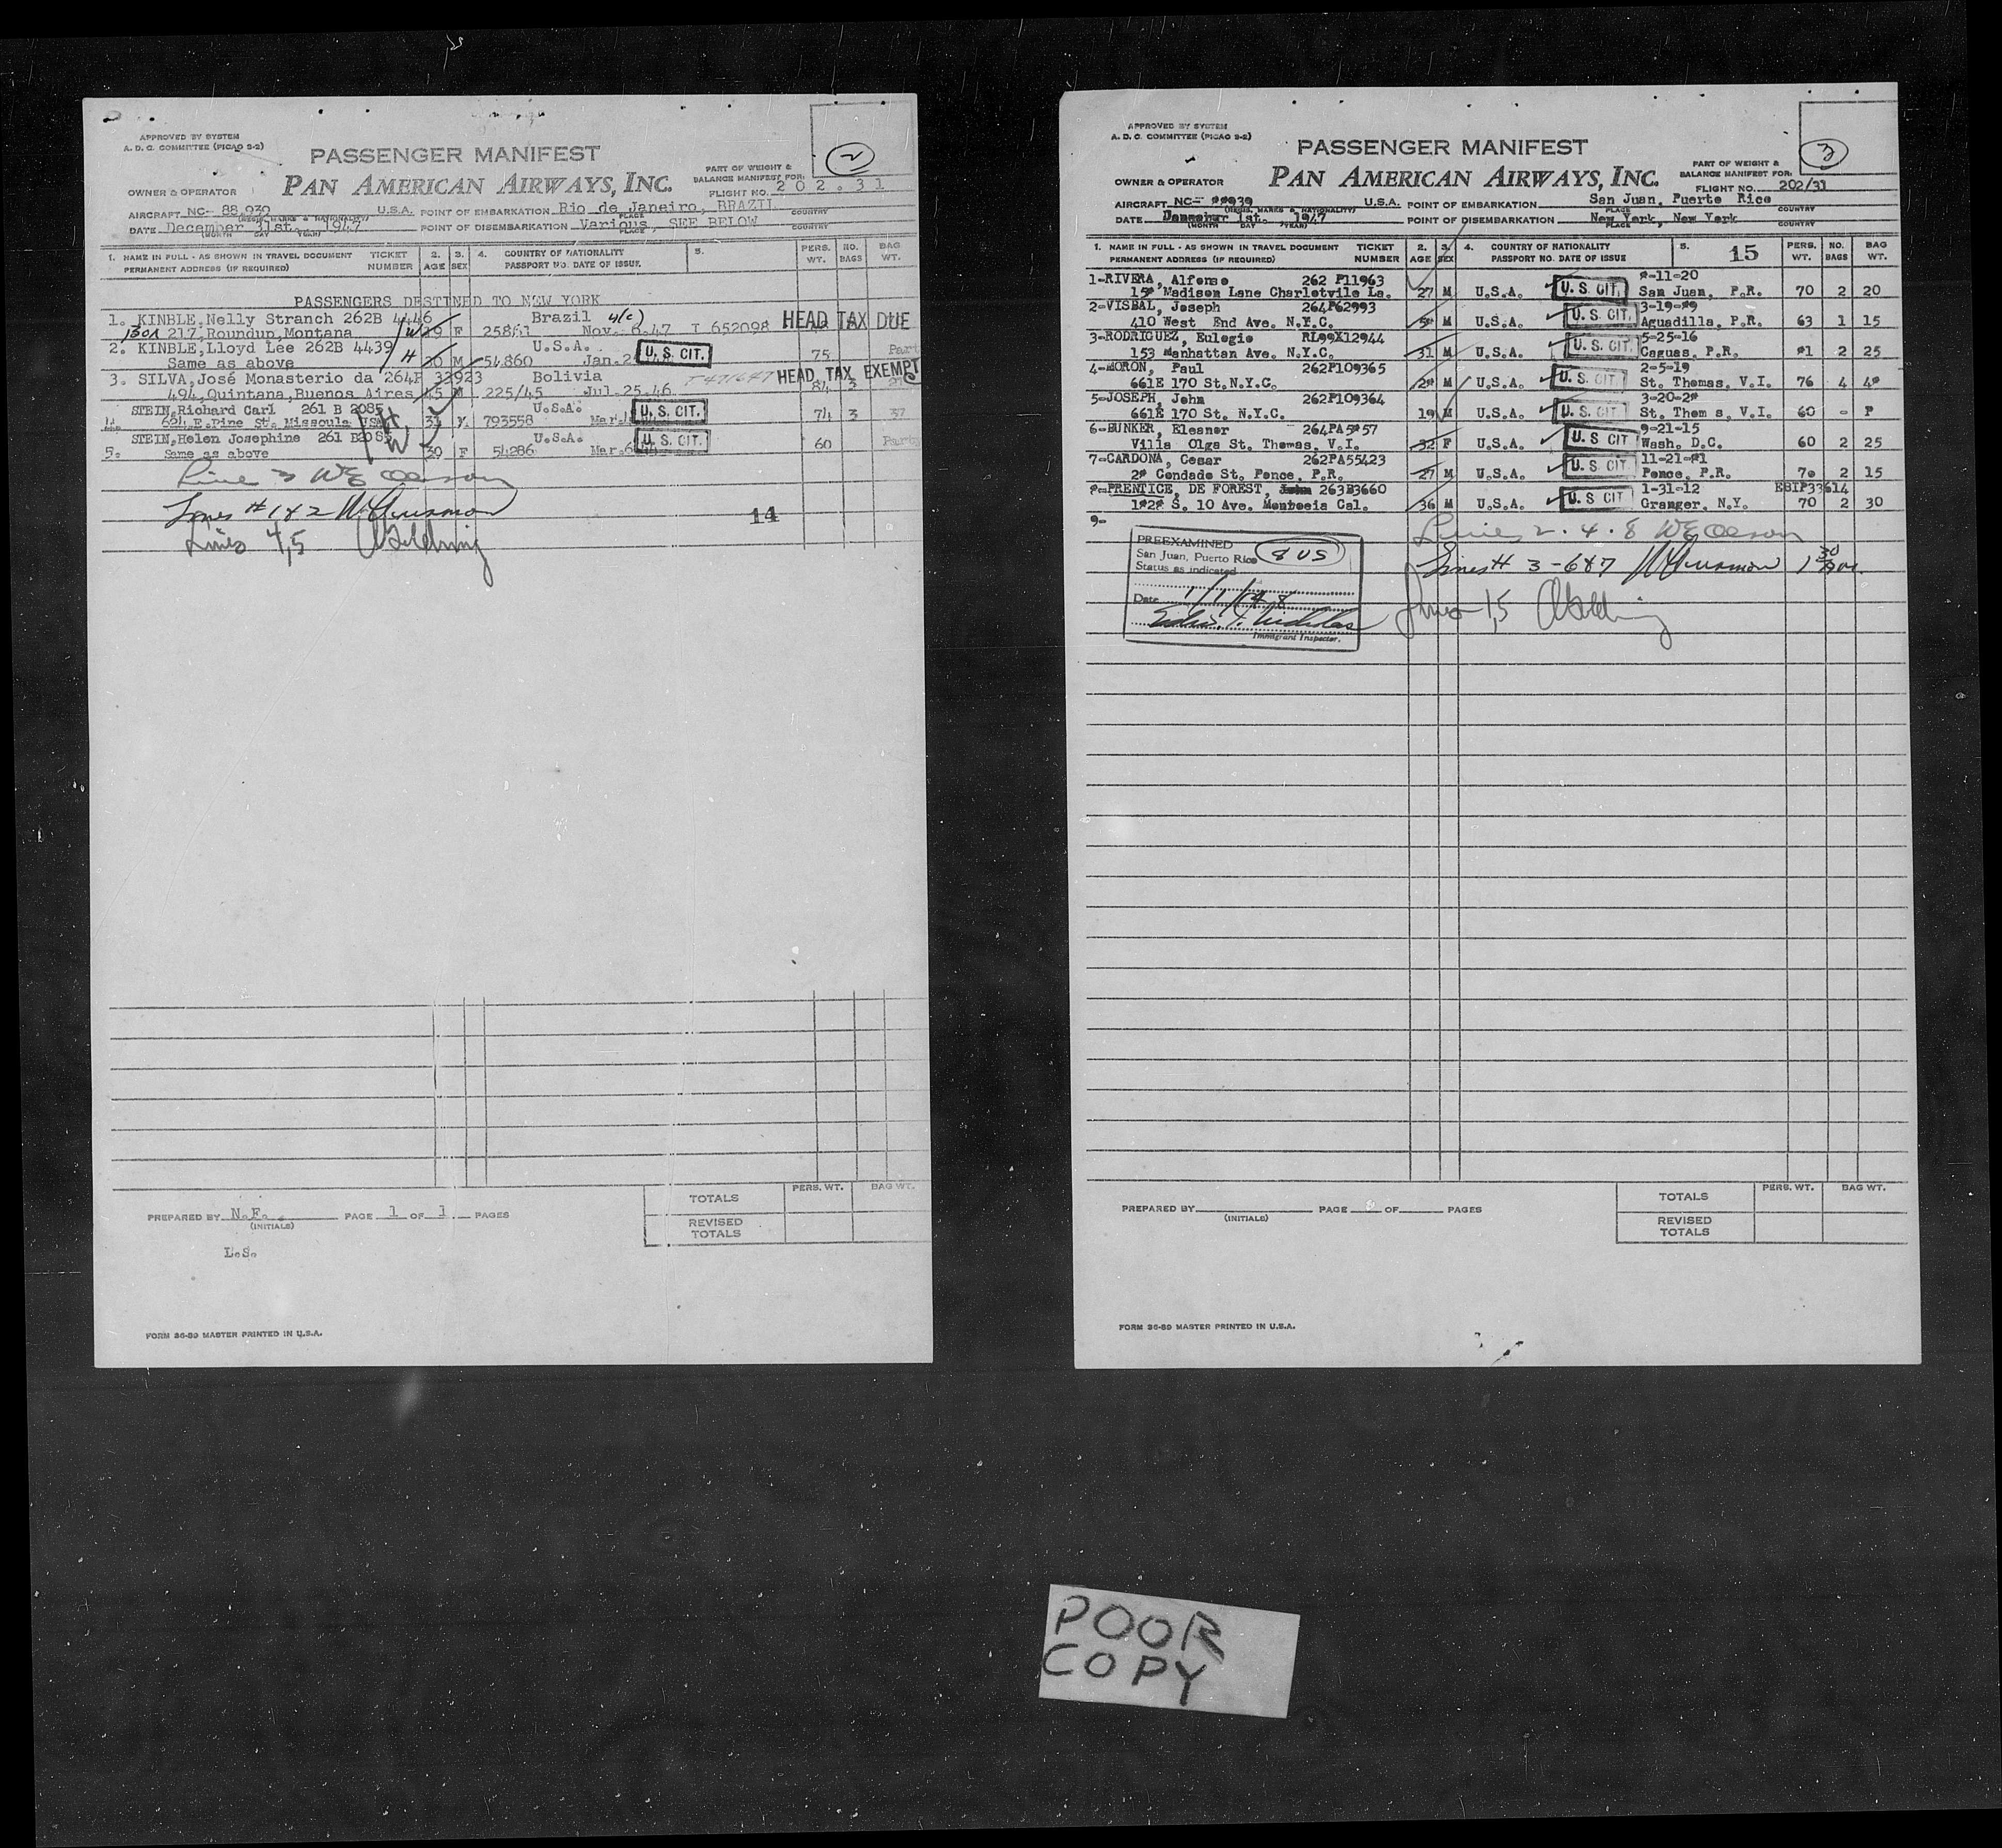 APPROVED BY SYSTEM
A. D. C. COMMITTEE (PICAO 3-2)
PASSENGER MANIFEST
2
PART OF WEIGHT &
BALANCE MANIFEST FOR:
OWNER & OPERATOR PAN AMERICAN AIRWAYS, INC. FLIGHT NO. 202.31
AIRCRAFT NC- 88939 U.S.A. POINT OF EMBARKATION Rio de Janeiro, BRAZIL
(REGIS. MARKS & NATIONALITY) PLACE COUNTRY
DATE December 31st. 1947 POINT OF DISEMBARKATION Various, SEE BELOW
(MONTH DAY YEAR) PLACE COUNTRY
1. NAME IN FULL - AS SHOWN IN TRAVEL DOCUMENT TICKET 2. 3. 4. COUNTRY OF NATIONALITY 5. PERS. NO. BAG
PERMANENT ADDRESS (IF REQUIRED) NUMBER AGE SEX PASSPORT NO. DATE OF ISSUE. WT. BAGS WT.
PASSENGERS DESTINED TO NEW YORK
1. KINBLE, Nelly Stranch 262B 4446 Brazil 4(c) HEAD TAX DUE
BOX 217, Roundup, Montana W 19 F Nov. 6.47 T 652098
2. KINBLE, Lloyd Lee 262B 4439 H U.S.A. U. S. CIT.
Same as above 20 M 54860 Jan. 75 Part
3. SILVA, José Monasterio da 264P 32923 Bolivia HEAD TAX EXEMPT
494, Quintana, Buenos Aires 45 M 225/45 Jul. 25.46 84 3
STEIN, Richard Carl 261 B 2085 H U.S.A. U. S. CIT.
4. 624 E. Pine St. Missoula USA 793558 Mar. 74 3 37
STEIN, Helen Josephine 261 B2085 W U.S.A. U. S. CIT.
5. Same as above 30 F 54286 Mar. 60 Party
Line 3 WE Olesony
Lines # 1 & 2
14
Lines 4,5
TOTALS PERS. WT. BAG WT.
PREPARED BY N.F. PAGE 1 OF 1 PAGES
(INITIALS)
REVISED
TOTALS
L.S.
FORM 36-89 MASTER PRINTED IN U.S.A.
APPROVED BY SYSTEM
A. D. C. COMMITTEE (PICAO 3-2)
PASSENGER MANIFEST
3
PART OF WEIGHT &
BALANCE MANIFEST FOR:
OWNER & OPERATOR PAN AMERICAN AIRWAYS, INC. FLIGHT NO. 202/31
AIRCRAFT NC- U.S.A. POINT OF EMBARKATION San Juan, Puerto Rico
(REGIS. MARKS & NATIONALITY) PLACE COUNTRY
DATE 1st. 1947 POINT OF DISEMBARKATION New York, New York
(MONTH DAY YEAR) PLACE COUNTRY
1. NAME IN FULL - AS SHOWN IN TRAVEL DOCUMENT TICKET 2. 3. 4. COUNTRY OF NATIONALITY 5. 15 PERS. NO. BAG
PERMANENT ADDRESS (IF REQUIRED) NUMBER AGE SEX PASSPORT NO. DATE OF ISSUE WT. BAGS WT.
1-RIVERA, Alfonso 262 P11963 -11-20
Madison Lane Charletvile La. 27 M U.S.A. U. S. CIT. San Juan, P.R. 70 2 20
2-VISBAL, Joseph 264P62993 3-19-
410 West End Ave. N.Y.C. M U.S.A. U. S. CIT. Aguadilla, P.R. 63 1 15
3-RODRIGUEZ, Eulogio RL99X12944 5-25-16
153 Manhattan Ave. N.Y.C. 31 M U.S.A. U. S. CIT. Caguas, P.R. 2 25
4-MORON, Paul 262P109365 2-5-19
661E 170 St.N.Y.C. M U.S.A. U. S. CIT. St. Thomas, V.I. 76 4
5-JOSEPH, John 262P109364 3-20-
661E 170 St. N.Y.C. 19 M U.S.A. U. S. CIT St. Thom s, V.I. 60 -
6-BUNKER, Eleanor 9-21-15
Villa Olga St. Thomas, V.I. 32 F U.S.A. U. S CIT Wash, D.C. 60 2 25
7-CARDONA, Cesar 262PA55423 11-21-
Condado St. Ponce, P.R. 27 M U.S.A. U. S. CIT. Ponce, P.R. 70 2 15
PRENTICE, DE FOREST, 263B3660 1-31-12 EBIP33614
S. 10 Ave. Montecia Cal. 36 M U.S.A. U. S CIT Granger, N.Y. 70 2 30
9-
Lines 2. 4. 8 WE Olesony
PREEXAMINED
San Juan, Puerto Rico 8 US
Status as indicated
Lines # 3-6&7
Date 1/1/48
Lines 1,5
Immigrant Inspector.
TOTALS PERS. WT. BAG WT.
PREPARED BY PAGE OF PAGES
(INITIALS)
REVISED
TOTALS
FORM 36-89 MASTER PRINTED IN U.S.A.
POOR
COPY